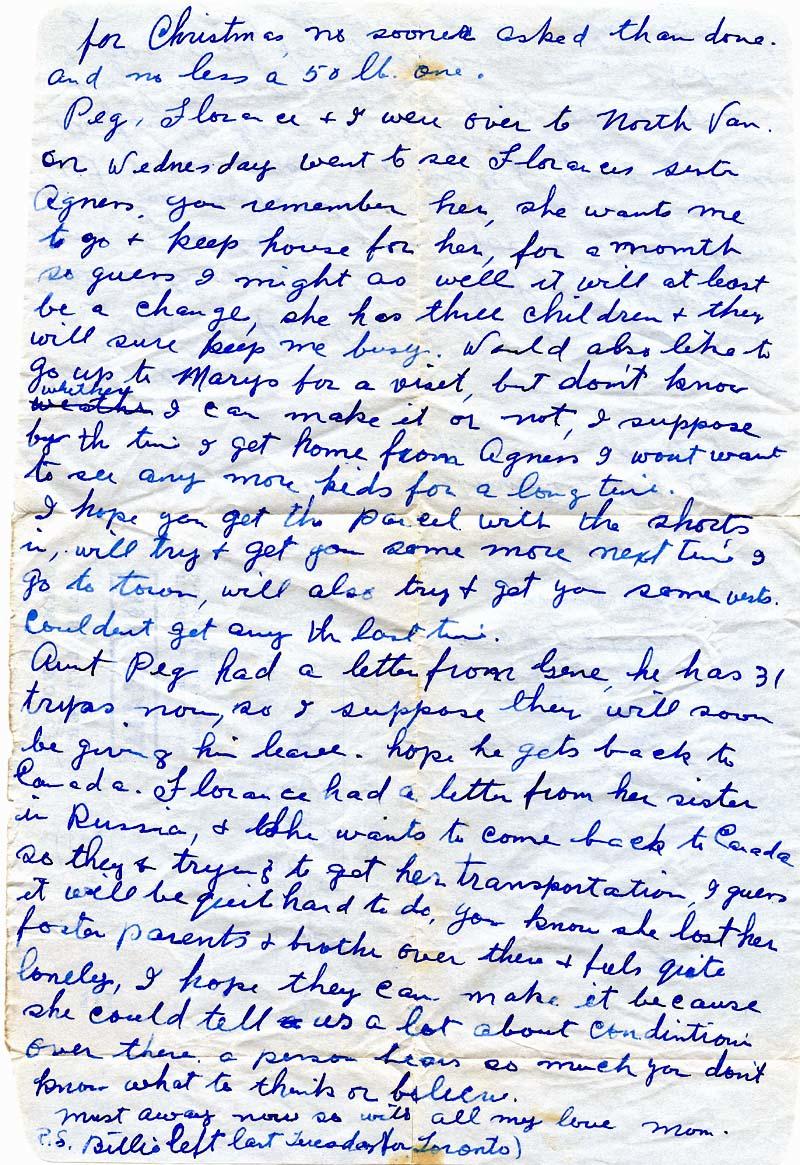 for Christmas, no sooner asked than done.
and no less a 50 lb. one.
Peg, Florance & I were over to North Van.
on Wednesday went to see Florances sister
Agness, you remember her, she wants me
to go & keep house for her, for a momth
so guess I might as well it will at least
be a change, she has three children & they
will sure keep me busy. Would also like to
go up to Marys for a visit, but don't know
whether I can make it or not, I suppose
by th time I get home from Agness I wont want
to see any more kids for a long time.
I hope you get the parcel with the shorts
in, will try & get you some more next time I
go to town, will also try & get you some vests.
Couldent get any th last time.
Aunt Peg had a letter from Gene, he has 31
tryps now, so I suppose they will soon
be giving him leave. hope he gets back to
Canada. Florance had a letter from her sister
in Russia, & she wants to come back to Canada
so they & trying to get her transportation, I guess
it will be quit hard to do, you know she lost her
foster parents & brothe over there & feels quite
lonely, I hope they can make it because
she could tell us a lot about condintions
over there. a person hears so much you don't
know what to think or believe.
must away now so with all my love mom.
P.S. Billie left last Tuesday for Toronto)